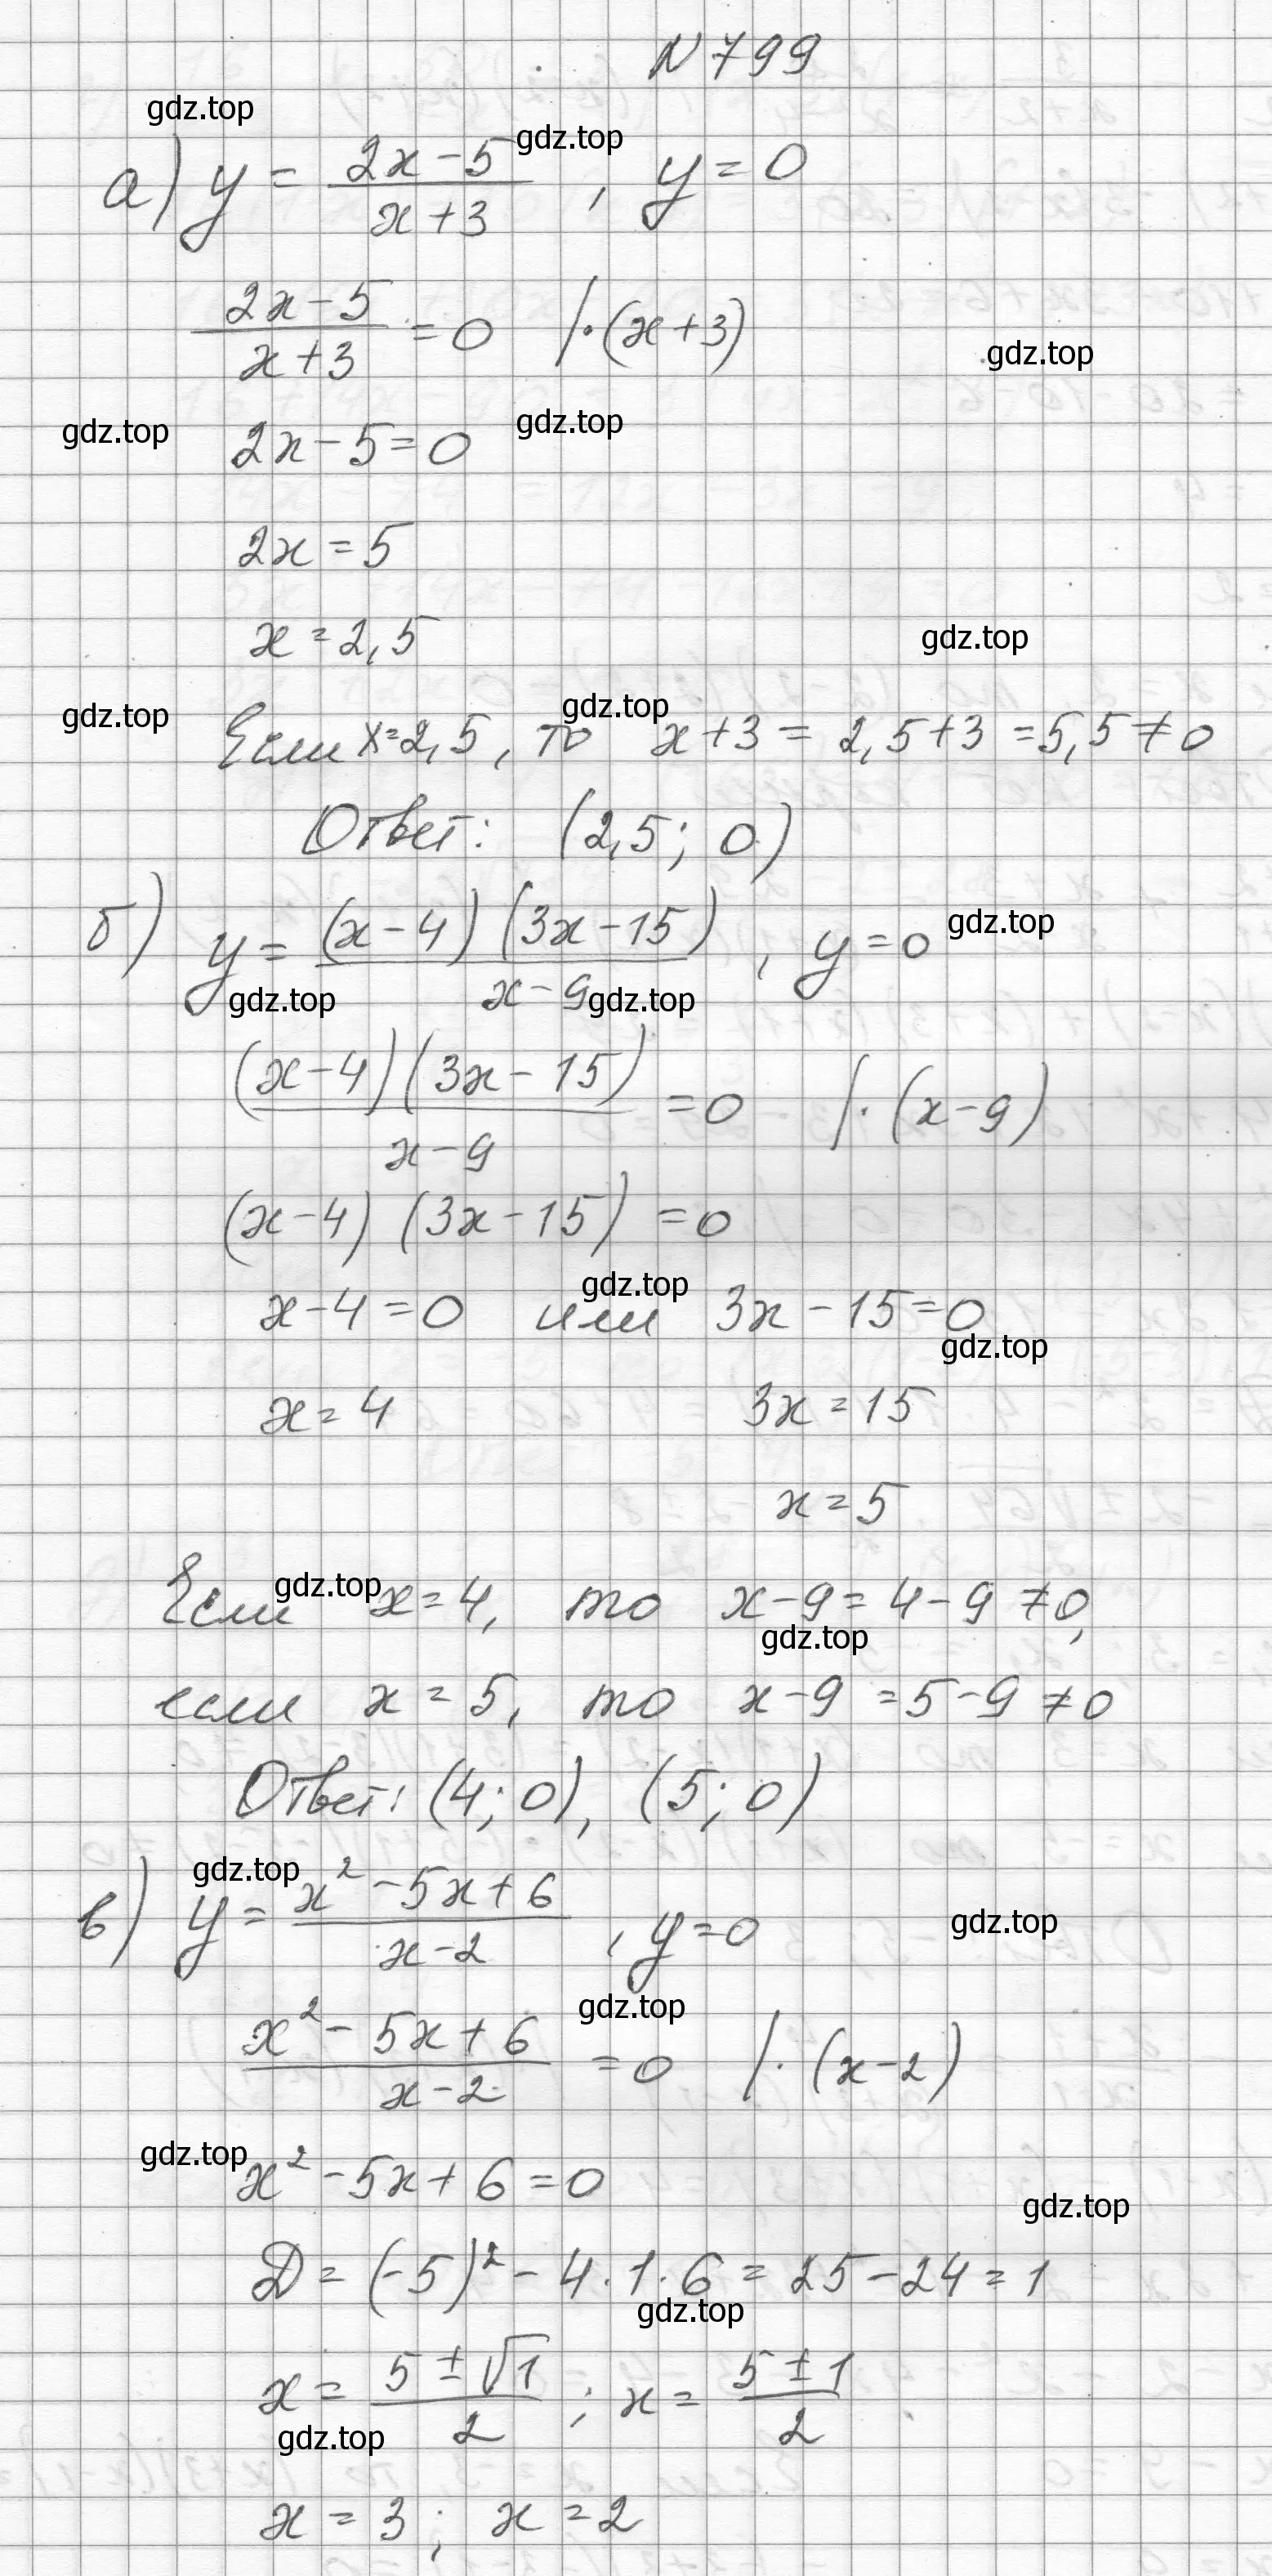 N 799
gdz.top
gdz.top
а) y = (2x-5)/(x+3) , y=0
(2x-5)/(x+3) = 0 |·(x+3)
gdz.top
gdz.top
gdz.top
2x-5=0
2x=5
x=2,5
gdz.top
gdz.top
gdz.top
Если x=2,5, то x+3 = 2,5+3 =5,5≠0
Ответ: (2,5; 0)
б) y = (x-4)(3x-15)/(x-9) , y=0
gdz.top
gdz.top
gdz.top
(x-4)(3x-15)/(x-9) =0 |·(x-9)
(x-4)(3x-15) =0
gdz.top
x-4=0 или 3x-15=0
gdz.top
x=4 3x=15
x=5
gdz.top
Если x=4, то x-9=4-9≠0,
gdz.top
если x=5, то x-9=5-9≠0
Ответ: (4;0), (5;0)
gdz.top
в) y = (x²-5x+6)/(x-2) , y=0
gdz.top
gdz.top
(x²-5x+6)/(x-2) =0 |·(x-2)
gdz.top
x²-5x+6=0
gdz.top
D=(-5)²-4·1·6=25-24=1
gdz.top
x=(5±√1)/2 ; x=(5±1)/2
gdz.top
x=3; x=2